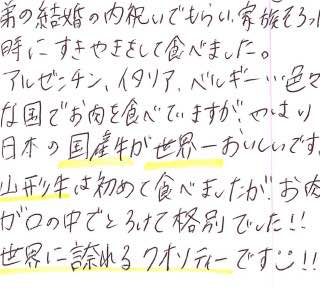 弟の結婚の内祝いでもらい、家族そろった
時にすきやきをして食べました。
アルゼンチン、イタリア、ベルギー…色々
な国でお肉を食べていますが、やはり
日本の国産牛が世界一おいしいです。
山形牛は初めて食べましたが、お肉
が口の中でとろけて格別でした!!
世界に誇れるクオリティーです!!